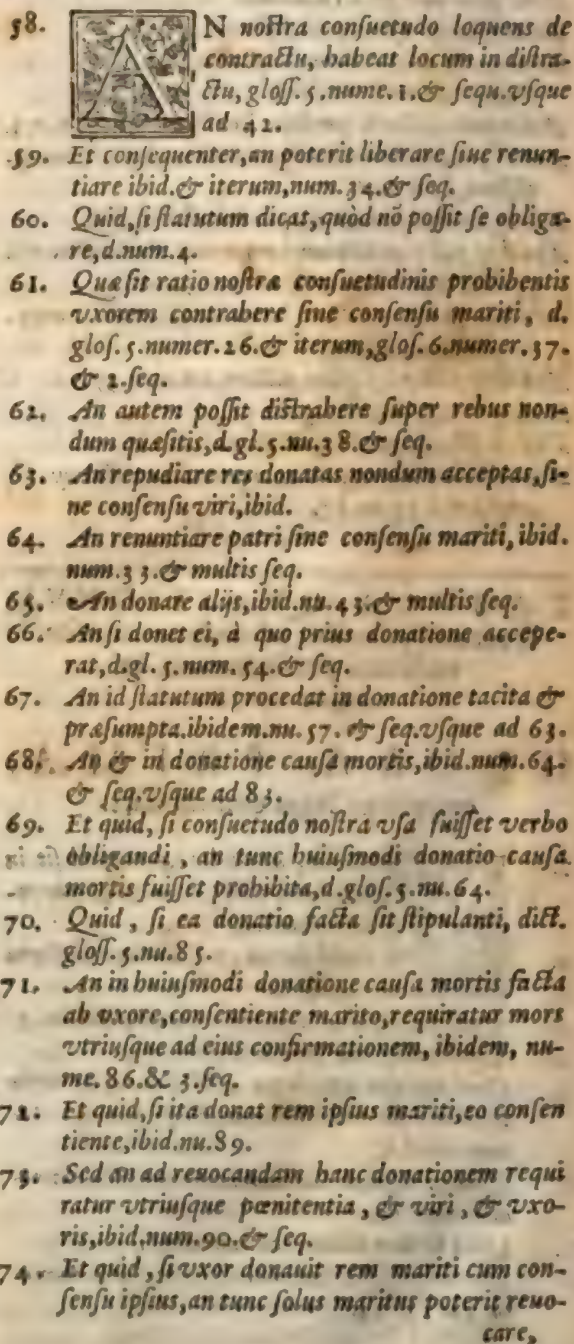 58. AN noſtra conſuetudo loquens de
contractu, habeat locum in diſtra-
ctu, gloſſ. 5. nume. 1. & ſequ. vſque
ad 42.
59. Et conſequenter, an poterit liberare ſiue renun-
tiare ibid. & iterum, num. 34. & ſeq.
60. Quid, ſi ſtatutum dicat, quòd nō poſſit ſe obliga-
re, d. num. 4.
61. Quæ ſit ratio noſtræ conſuetudinis prohibentis
vxorem contrahere ſine conſenſu mariti, d.
gloſ. 5. numer. 26. & iterum, gloſ. 6. numer. 37.
& 2. ſeq.
62. An autem poſſit diſtrahere ſuper rebus non-
dum quæſitis, d. gl. 5. nu. 38. & ſeq.
63. An repudiare res donatas nondum acceptas, ſi-
ne conſenſu viri, ibid.
64. An renuntiare patri ſine conſenſu mariti, ibid.
num. 33. & multis ſeq.
65. An donare alijs, ibid. nu. 43. & multis ſeq.
66. An ſi donet ei, à quo prius donatione accepe-
rat, d. gl. 5. num. 54. & ſeq.
67. An id ſtatutum procedat in donatione tacita &
præſumpta. ibidem. nu. 57. & ſeq. vſque ad 63.
68. An & in donatione cauſa mortis, ibid. num. 64.
& ſeq. vſque ad 83.
69. Et quid, ſi conſuetudo noſtra vſa fuiſſet verbo
obligandi, an tunc huiuſmodi donatio cauſa
mortis fuiſſet prohibita, d. gloſ. 5. nu. 64.
70. Quid, ſi ea donatio facta ſit ſtipulanti, dict.
gloſſ. 5. nu. 85.
71. An in huiuſmodi donatione cauſa mortis facta
ab vxore, conſentiente marito, requiratur mors
vtriuſque ad eius confirmationem, ibidem, nu-
me. 86. & 3. ſeq.
72. Et quid, ſi ita donat rem ipſius mariti, eo conſen
tiente, ibid. nu. 89.
73. Sed an ad reuocandam hanc donationem requi
ratur vtriuſque pœnitentia, & viri, & vxo-
ris, ibid. num. 90. & ſeq.
74. Et quid, ſi vxor donauit rem mariti cum con-
ſenſu ipſius, an tunc ſolus maritus poterit reuo-
care,